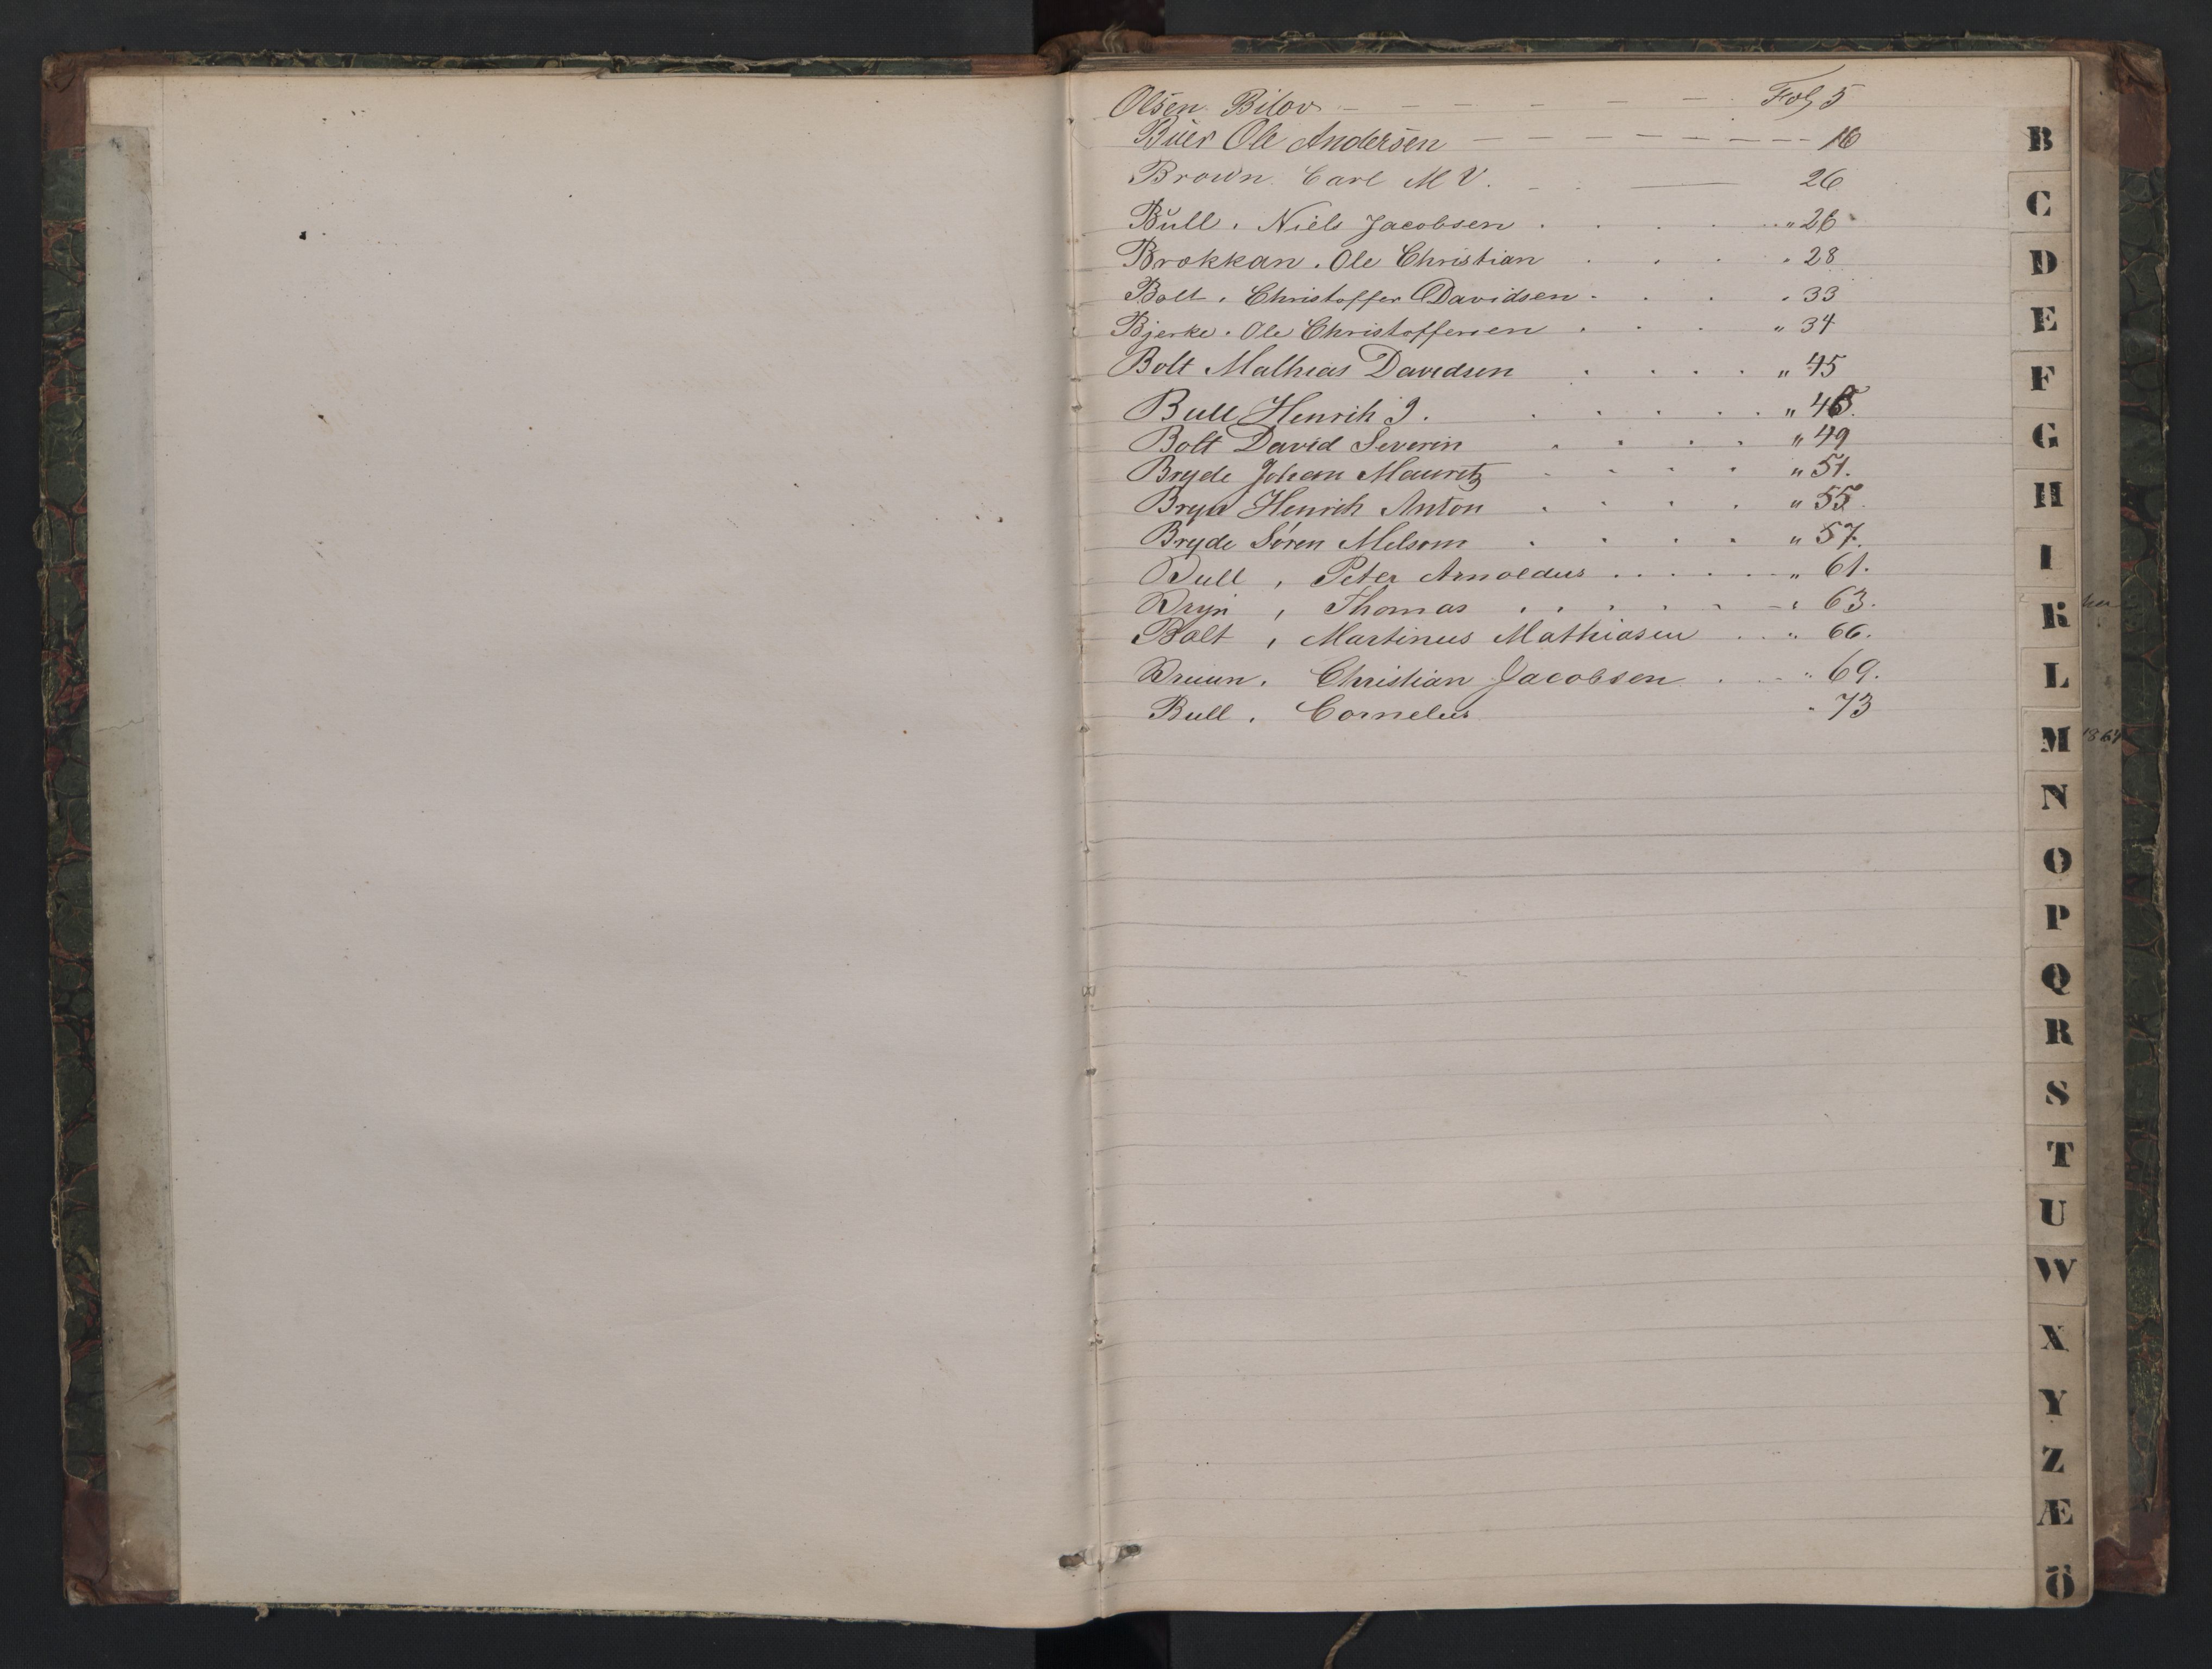 Olsen Bilov - - - - - - Fol 5
Buer Ole Andersen - - - - - - - - 16
Brown Carl M V. - . — 26
Bull. Niels Jacobsen . . . . . „ 26
Brokkan. Ole Christian . . . . 28
Bolt. Christoffer Davidsen. . . . 33
Bjerke. Ole Christoffersen . . . „ 34
Bolt Mathias Davidsen . . . . „ 45
Bull Henrik J. . . . . . „ 46.
Bolt David Severin . . . . „ 49
Bryde Johan Mauritz . . . . „ 51.
Bryn Henrik Anton . . . . „ 55.
Bryde Søren Melsom . . . . „ 57.
Bull, Peter Arnoldus . . . . . „ 61.
Bryn, Thomas . . . . . . „ 63.
Bolt, Martinus Mathiasen . . „ 66.
Bruun. Christian Jacobsen . . „ 69.
Bull. Cornelius „ 73
B
C
D
E
F
G
H
I
K
L
M
1864
N
O
P
Q
R
S
T
U
W
X
Y
Z
Æ
Ö